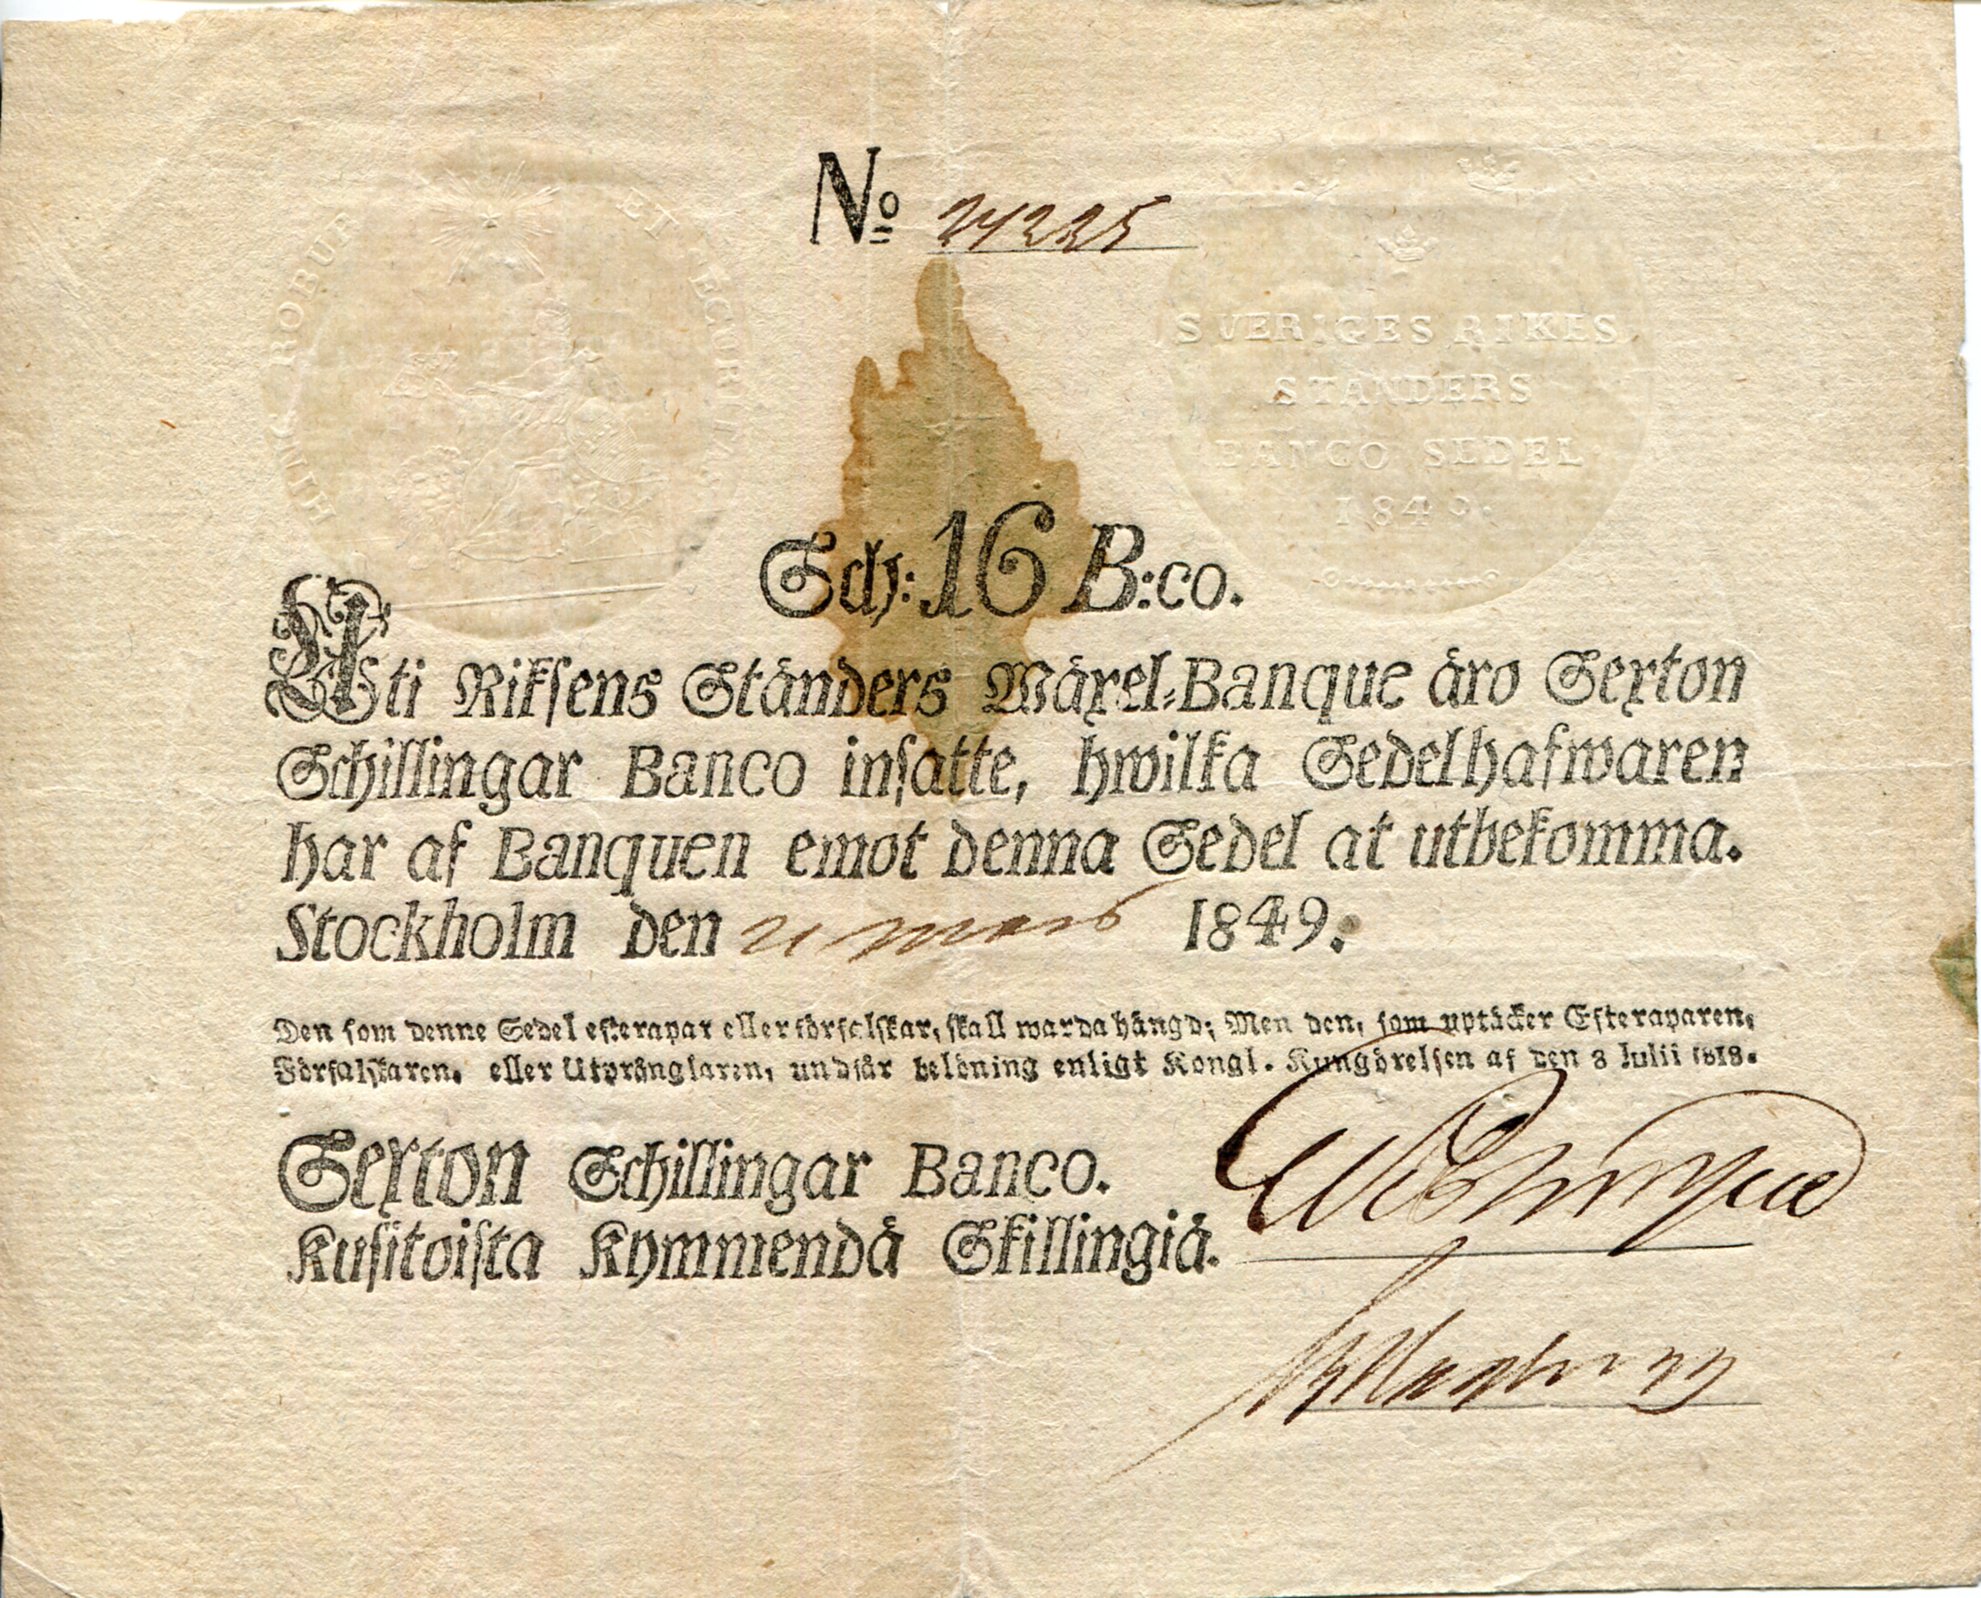 No 24225
HINC ROBUR ET SECURITAS
SVERIGES RIKES
STÄNDERS
BANCO SEDEL
184
Sch: 16 B:co.
Uti Riksens Ständers Wäxel-Banque äro Sexton
Schillingar Banco insatte, hwilka Sedelhafwaren
har af Banquen emot denna Sedel at utbekomma.
Stockholm den 21 mars 1849.
Den som denne Sedel efterapar eller förfalskar, skall warda hängd; Men den, som uptäcker Efteraparen,
Förfalskaren, eller Utprånglaren, undfår belöning enligt Kongl. Kungörelsen af den 8 Julii 1818.
Sexton Schillingar Banco.
Kusitoista Kymmendä Skillingiä.